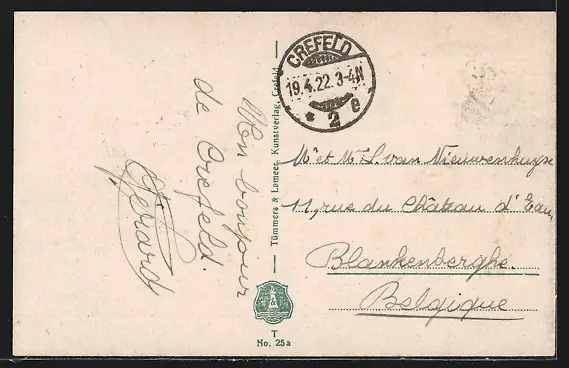 Mon bonjour
de Crefeld.
Gérard
Tümmers & Lameer, Kunstverlag, Crefeld
T
No. 25a
CREFELD
19.4.22. 3-4N
* 2 e
Mr et Me L. van Nieuwenhuyse
11, rue du Château d'Eau,
Blankenberghe.
Belgique